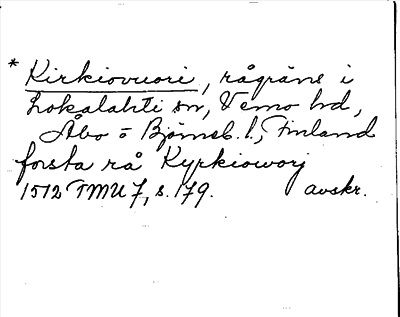 * Kirkiovuori, rågräns i
Lokalahti sn, Vemo hd,
Åbo o Björneb. l., Finland
forsta rå Kyrkiowory
1512 TMU 7, s. 179. avskr.